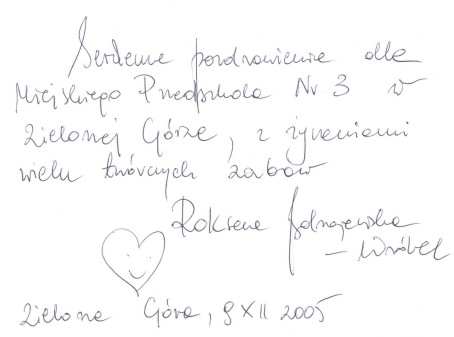 Serdeczne pozdrowienia dla
Miejskiego Przedszkola Nr 3 w
Zielonej Górze, z życzeniami
wielu twórczych zabaw
Roksana Jędrzejewska
– Wróbel
Zielona Góra, 9 XII 2005